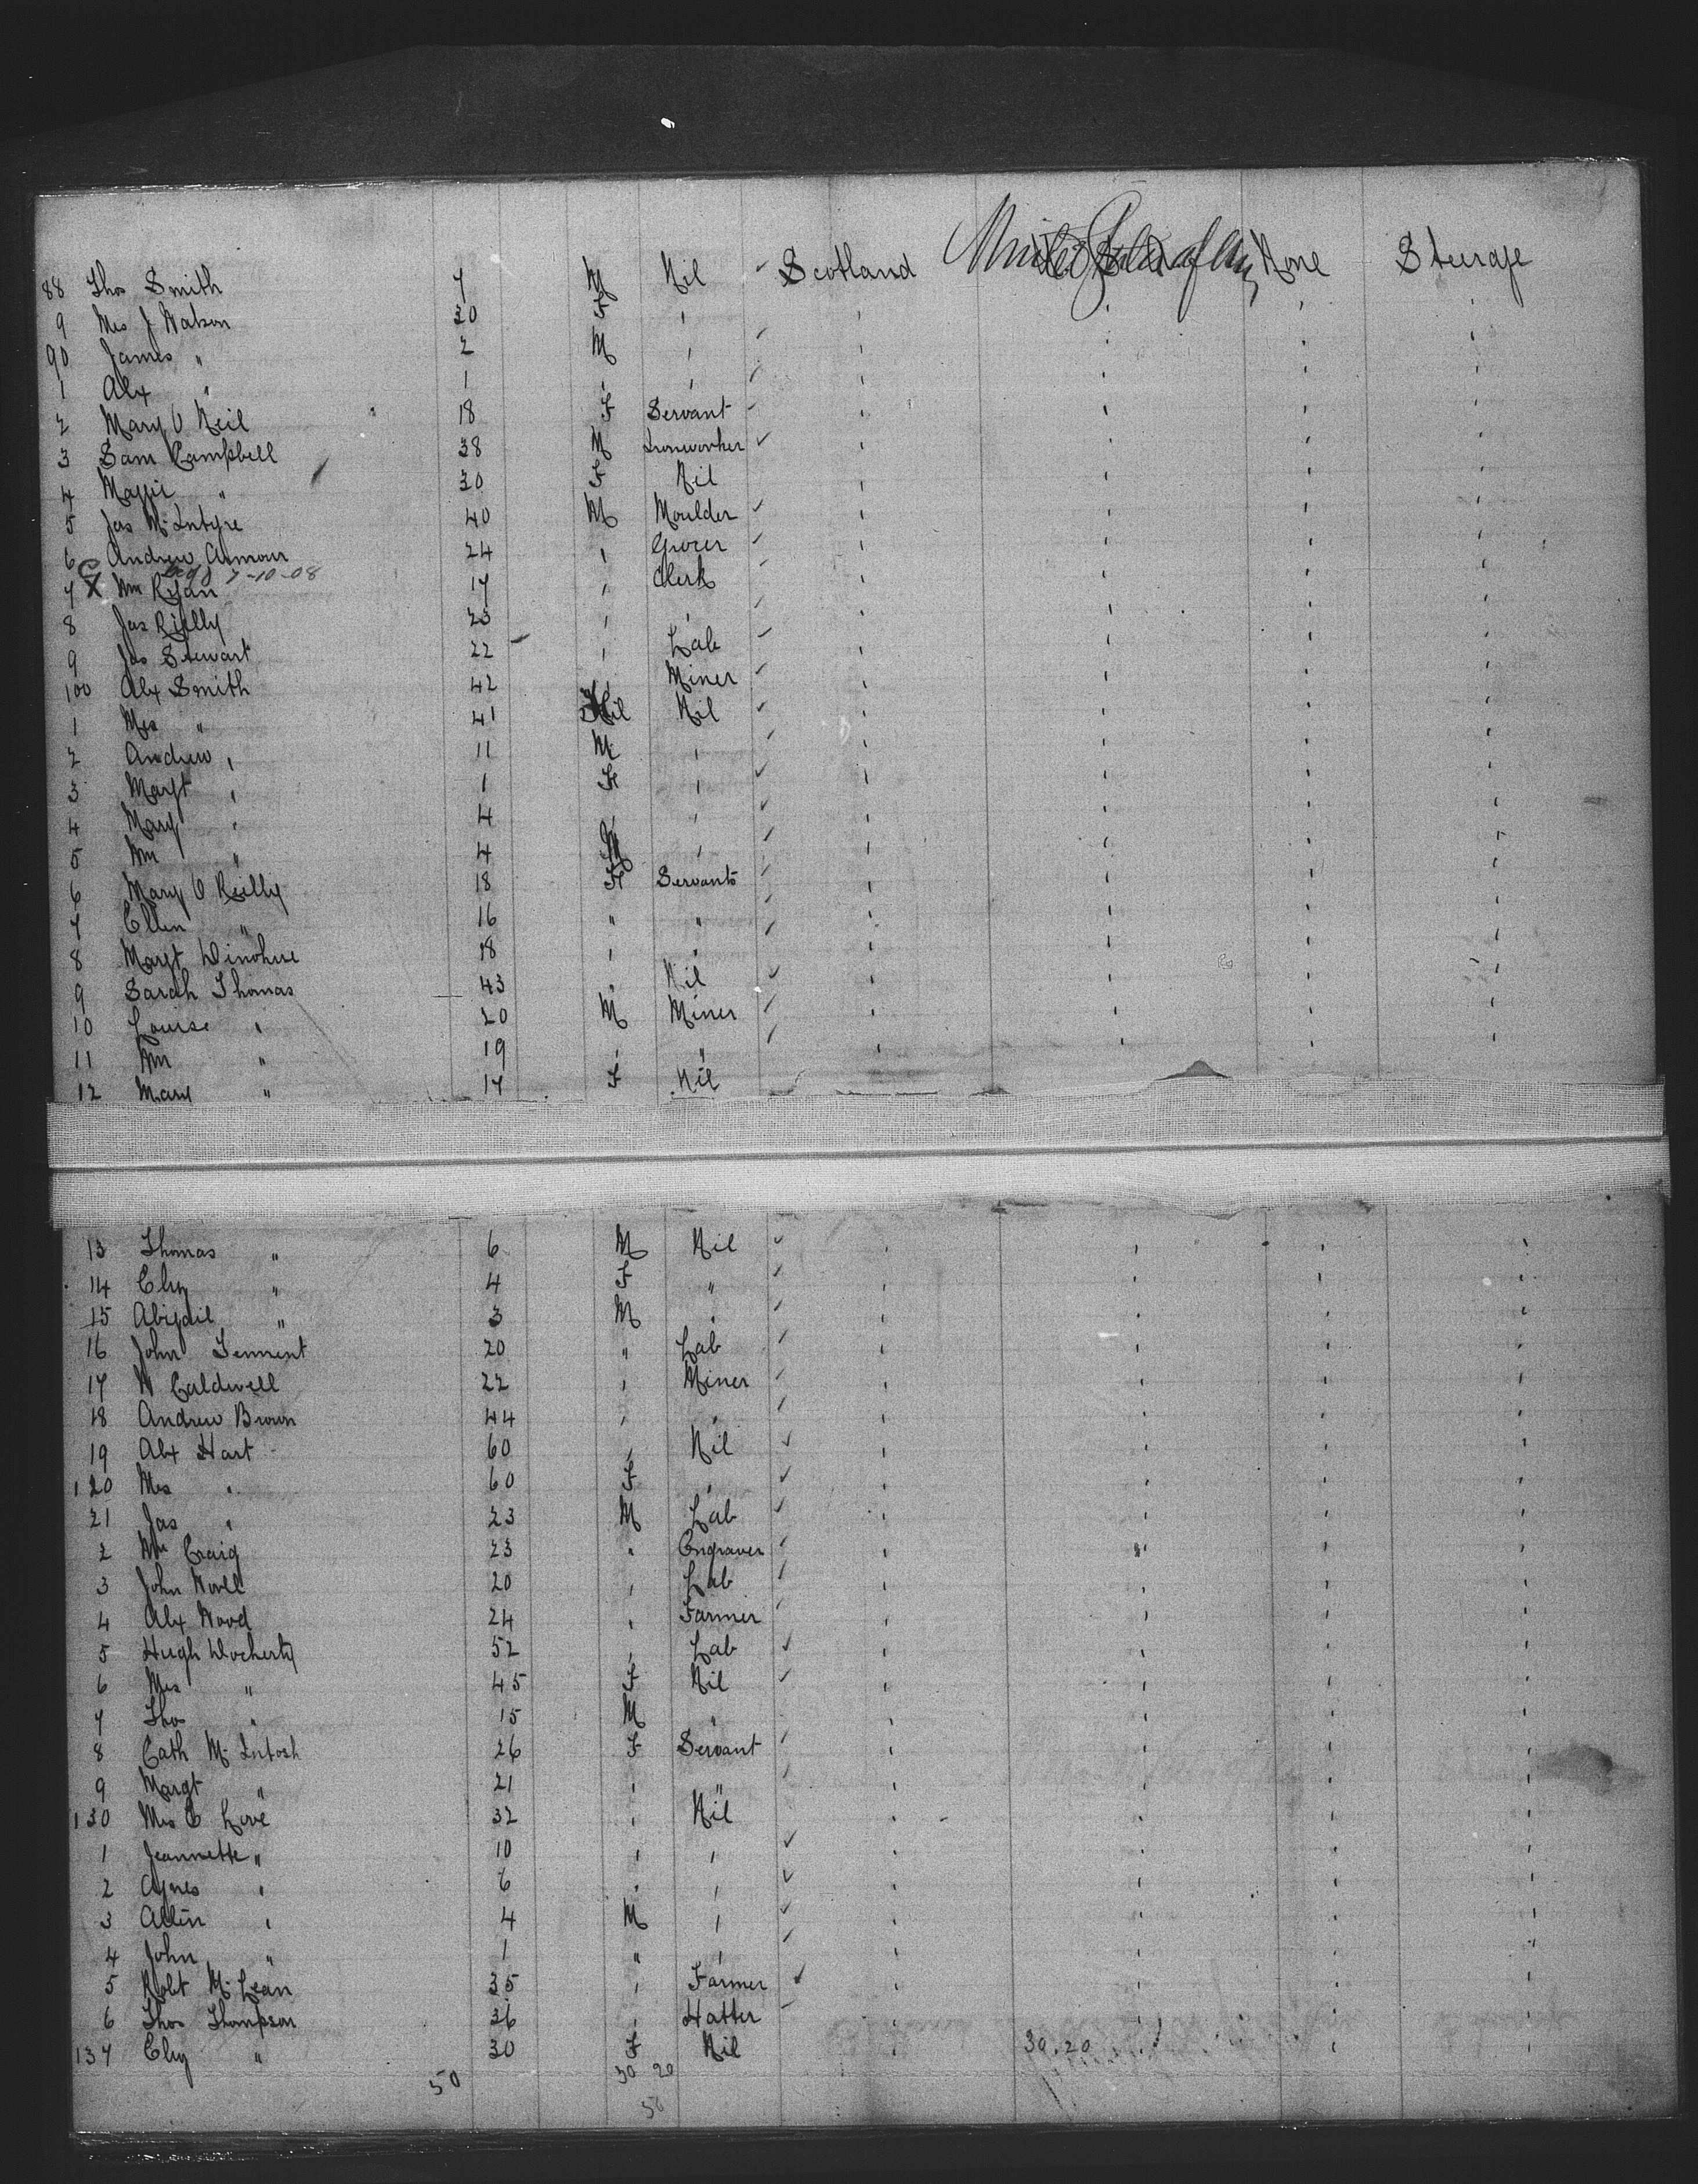 88 Thos Smith 7 M Nil Scotland United States of Am None Steerage
9 Mrs J Watson 30 F " " " " "
90 James " 2 M " " " " "
1 Alx " 1 " " " " " "
2 Mary O Neil 18 F Servant " " " "
3 Sam Campbell 38 M Ironworker " " " "
4 Maggie " 30 F Nil " " " "
5 Jas McIntyre 40 M Moulder " " " "
6 Andrew Armour 24 " Grocer " " " "
7-10-08
7 X Wm Ryan 17 " Clerk " " " "
8 Jas Rielly 23 " " " " " "
9 Jas Stewart 22 " Lab " " " "
100 Alx Smith 42 " Miner " " " "
1 Mrs " 41 Nil " " " "
2 Andrew " 11 M " " " " "
3 Margt " 1 F " " " " "
4 Mary " 4 " " " " " "
5 Wm " 4 M " " " " "
6 Mary O Reilly 18 F Servants " " " "
7 Ellen " 16 " " " " " "
8 Margt Dinohue 18 " " " " " "
9 Sarah Thomas 43 " Nil " " " "
10 Louise " 20 M Miner " " " "
11 Wm " 19 " " " " " "
12 Mary " 17 F Nil
13 Thomas " 6 M Nil " " " "
14 Elsy " 4 F " " " " "
15 Abigail " 3 M " " " " "
16 John Tennent 20 " Lab " " " "
17 W Caldwell 22 " Miner " " " "
18 Andrew Brown 44 " " " " " "
19 Alx Hart 60 " Nil " " " "
120 Mrs " 60 F " " " " "
21 Jas " 23 M Lab " " " "
2 Wm Craig 23 " Engraver " " " "
3 John 20 " Lab " " " "
4 Alx Wood 24 " Farmer " " " "
5 Hugh Docherty 52 " Lab " " " "
6 Mrs " 45 F Nil " " " "
7 Thos " 15 M " " " " "
8 Cath McIntosh 26 F Servant " " " "
9 Margt " 21 " " " " " "
130 Mrs C Love 32 " Nil " " " "
1 Jeannette " 10 " " " " " "
2 Agnes " 6 " " " " " "
3 Allen " 4 M " " " " "
4 John " 1 " " " " " "
5 Robt McLean 35 " Farmer " " " "
6 Thos Thompson 36 " Hatter " " " "
137 Elsy " 30 F Nil " 30.20 " " "
50 30 20
50